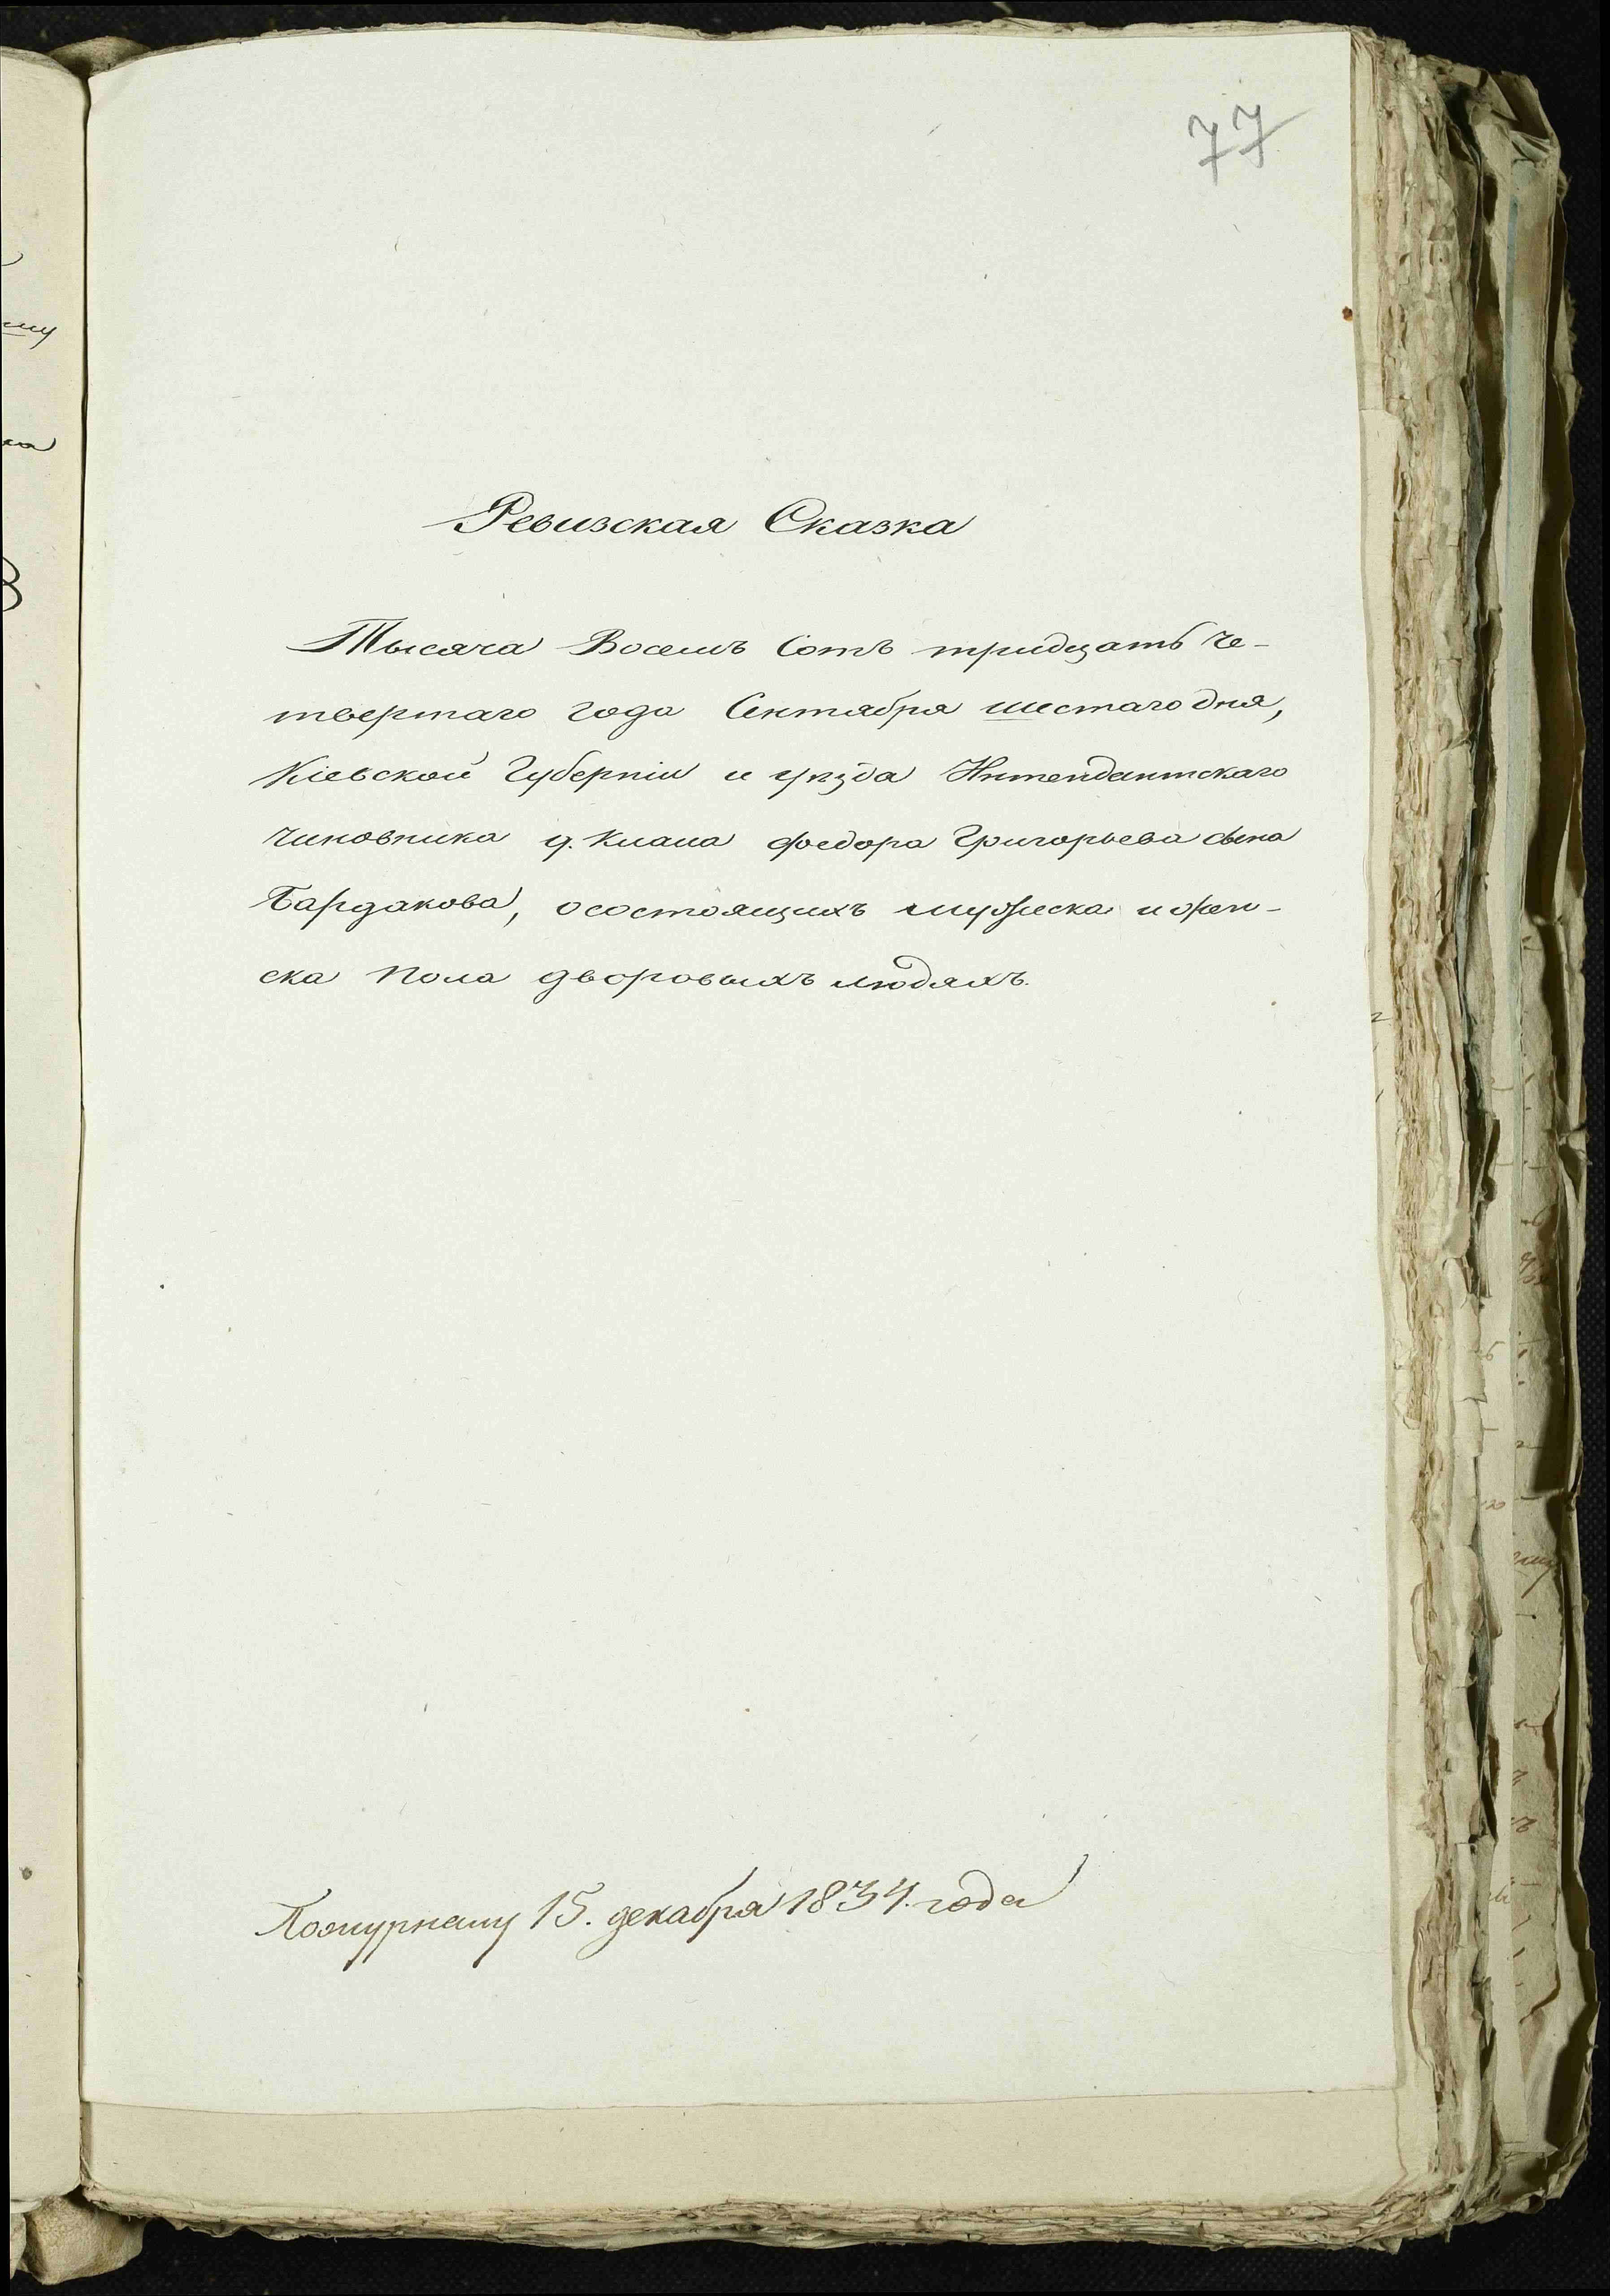 77
Ревизская Сказка
Тысяча Восемъ Сотъ тридцать че-
твертаго года Сентября шестаго дня,
Кіевской Губерніи и уѣзда Интендантскаго
чиновника 9. Класа Федора Григорьева сына
Бардакова, о состоящихъ мужеска и жен-
ска пола дворовыхъ людяхъ.
По журналу 15. декабря 1834. года